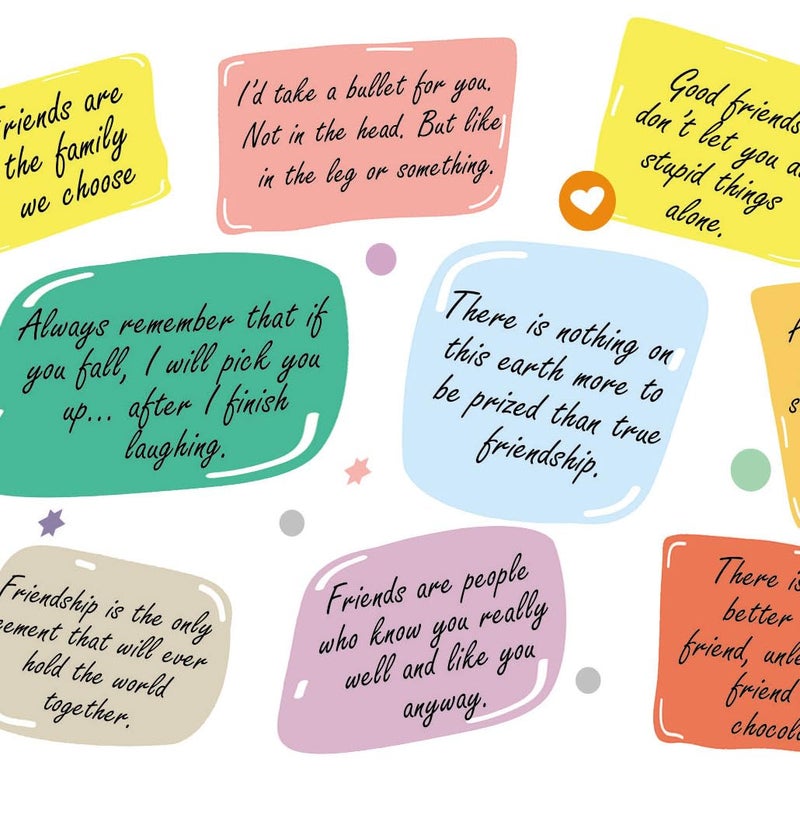 Friends are
the family
we choose
I'd take a bullet for you.
Not in the head. But like
in the leg or something.
Good friends
don't let you
stupid things
alone.
Always remember that if
you fall, I will pick you
up... after I finish
laughing.
There is nothing on
this earth more to
be prized than true
friendship.
Friendship is the only
cement that will ever
hold the world
together.
Friends are people
who know you really
well and like you
anyway.
There is
better
friend,
friend